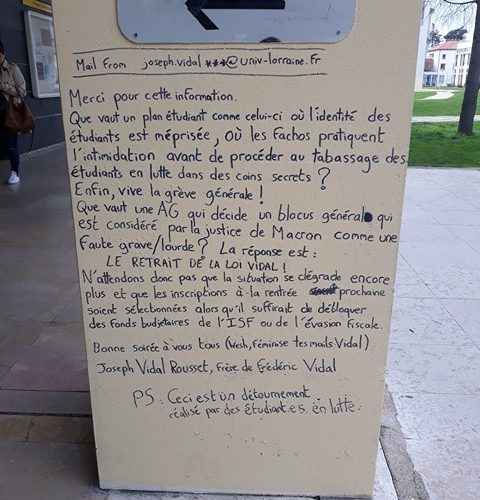 Mail From joseph.vidal ***@univ-lorraine.Fr
Merci pour cette information.
Que vaut un plan étudiant comme celui-ci où l'identité des
étudiants est méprisée, où les Fachos pratiquent
l'intimidation avant de procéder au tabassage des
étudiants en lutte dans des coins secrets ?
Enfin, vive la grève générale !
Que vaut une AG qui décide un blocus général qui
est considéré par la justice de Macron comme une
Faute grave/lourde ? La réponse est :
LE RETRAIT DE LA LOI VIDAL !
N'attendons donc pas que la situation se dégrade encore
plus et que les inscriptions à la rentrée prochaine
soient sélectionnées alors qu'il suffirait de débloquer
des fonds budgétaires de l'ISF ou de l'évasion fiscale.
Bonne soirée à vous tous (Wesh, Féminise tes mails Vidal)
Joseph Vidal Rousset, Frère de Frédéric Vidal
PS : Ceci est un détournement
réalisé par des étudiant.e.s en lutte.